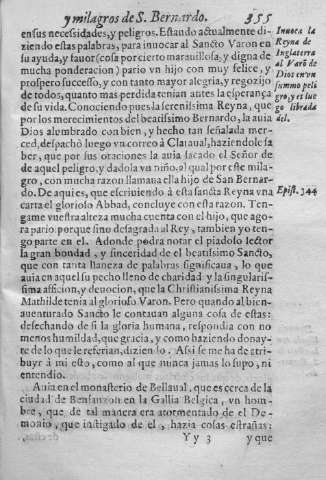 y milagros de S. Bernardo. 355
en sus necessidades, y peligros. Estando actualmente di-
ziendo estas palabras, para inuocar al Sancto Varon en
su ayuda, y fauor (cosa por cierto marauillosa, y digna de
mucha ponderacion) pario vn hijo con muy felice, y
prospero successo, y con tanto mayor alegria, y regozijo
de todos, quanto mas perdida tenian antes la esperança
de su vida. Conociendo pues la serenissima Reyna, que
por los merecimientos del beatissimo Bernardo, la auia
Dios alumbrado con bien, y hecho tan señalada mer-
ced, despachò luego vn correo à Claraual, haziendole sa
ber, que por sus oraciones la auia sacado el Señor de
de aquel peligro, y dadola vn niño, al qual por este mila-
gro, con mucha razon llamaua el la hijo de San Bernar-
do. De aqui es, que escriuiendo à esta sancta Reyna vna
carta el glorioso Abbad, concluye con esta razon. Ten-
game vuestra alteza mucha cuenta con el hijo, que ago-
ra pario, porque sino desagrada al Rey, tambien yo ten-
go parte en el. Adonde podra notar el piadoso lector
la gran bondad, y sinceridad de el beatissimo Sancto,
que con tanta llaneza de palabras significaua, lo que
auia en aquel su pecho lleno de charidad y la singularis-
sima afficion, y deuocion, que la Christianissima Reyna
Mathilde tenia al glorioso Varon. Pero quando al bien-
auenturado Sancto le contauan alguna cosa de estas:
desechando de si la gloria humana, respondia con no
menos humildad, que gracia, y como haziendo donay-
re de lo que le referian, diziendo, Assi se me ha de atri-
buyr à mi esto, como al que nunca jamas lo supo, ni
entendio.
Auia en el monasterio de Bellaual, que es cerca de la
ciudad de Bensanzon en la Gallia Belgica, vn hom-
bre, que de tal manera era atormentado de el De-
monio, que instigado de el, hazia cosas estrañas:
Y y 3 y que
Inuoca la
Reyna de
Inglaterra
al Varõ de
Dios en vn
summo peli
gro, y es lue
go librada
del.
Epist. 344